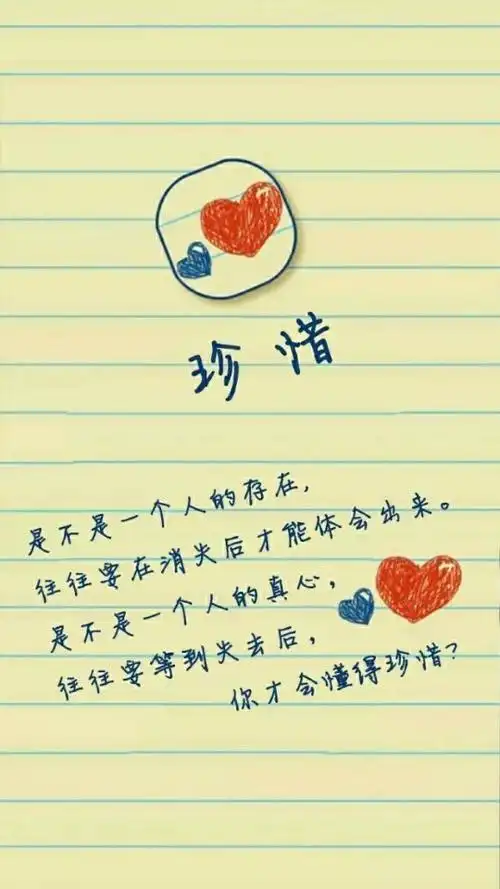 珍惜
是不是一个人的存在,
往往要在消失后才能体会出来。
是不是一个人的真心,
往往要等到失去后,
你才会懂得珍惜?